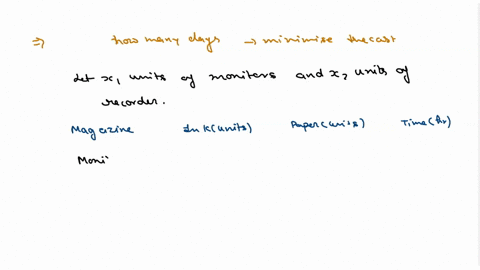 ⇒ how many days → minimise the cost
det x₁ units of moniters and x₂ units of
recorder.
Magazine Ink(units) Paper(units) Time(hr)
Moni